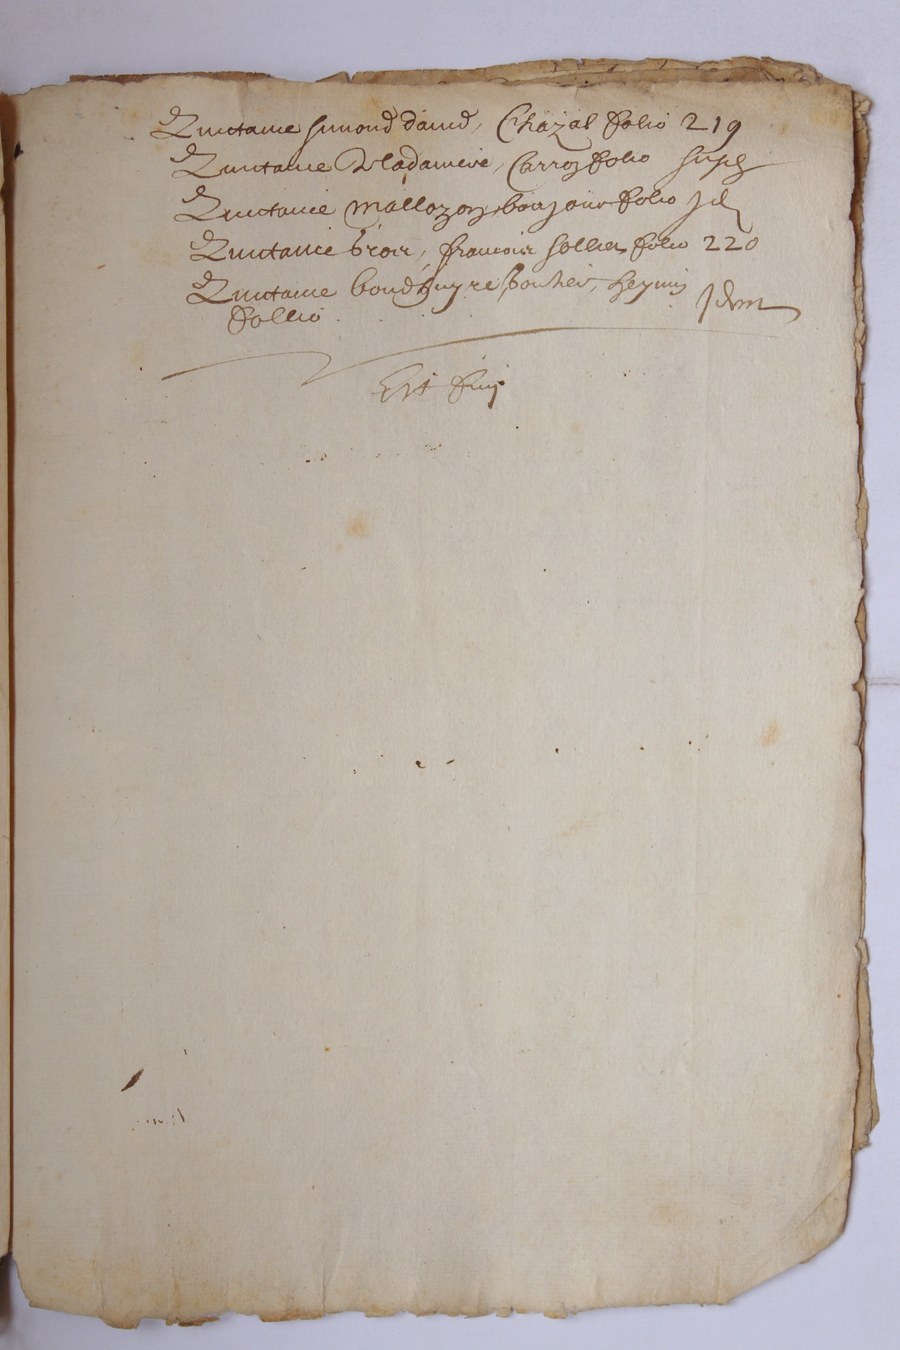 Quictance simond david, Chazal folio 219
Quictance Deladameire, Carroz folio susd
Quictance mallozon, bonjour folio Id
Quictance broir, francois sollier folio 220
Quictance boudhuyre
follio Idem
Est finy